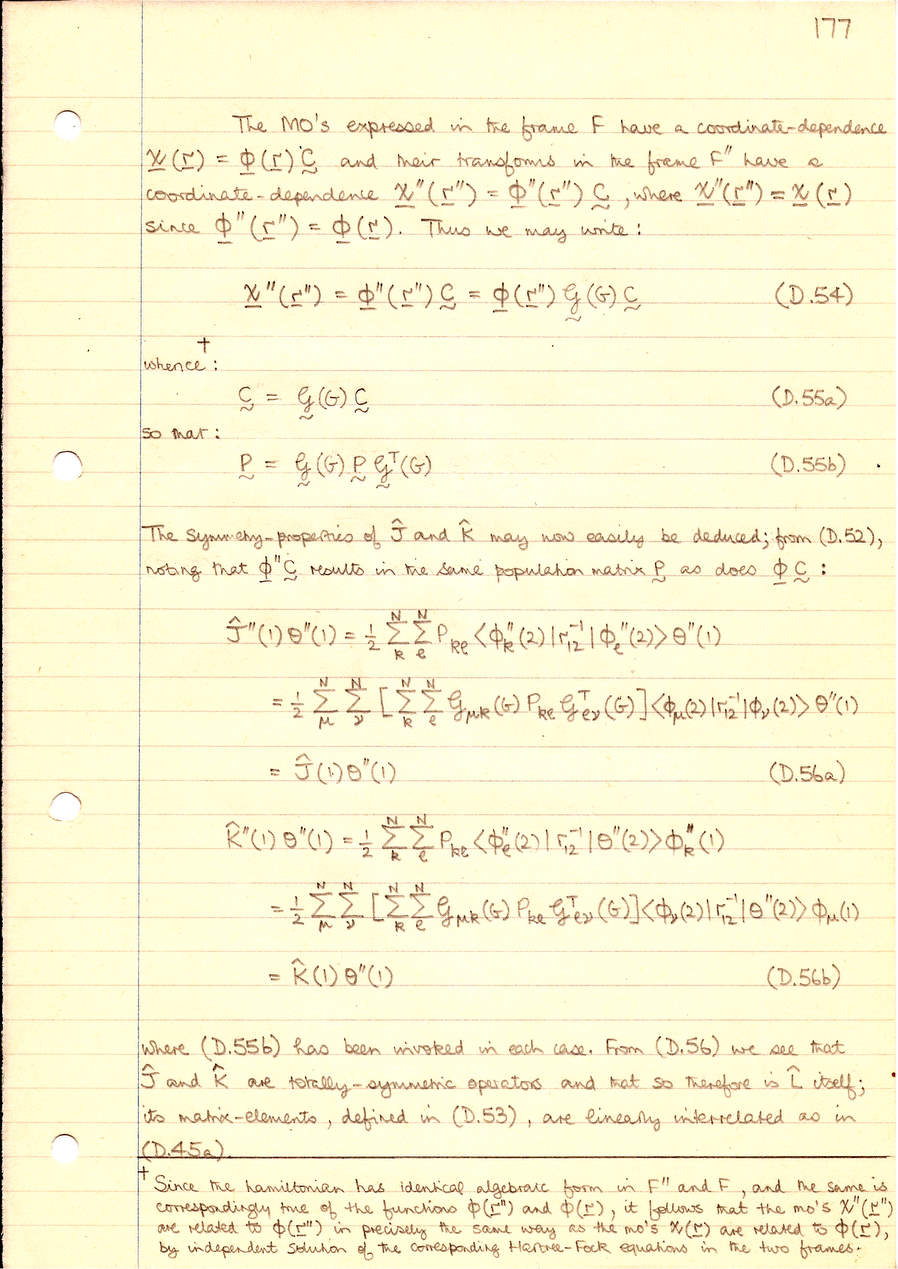 177
The MO's expressed in the frame F have a coordinate-dependence
χ(r) = φ(r) C and their transforms in the frame F" have a
coordinate-dependence χ"(r") = φ"(r") C, where χ"(r") = χ(r)
since φ"(r") = φ(r). Thus we may write:
χ"(r") = φ"(r") C = φ(r") 𝒢(G) C (D.54)
†
whence:
C = 𝒢(G) C (D.55a)
so that:
P = 𝒢(G) P 𝒢ᵀ(G) (D.55b)
The symmetry-properties of Ĵ and K̂ may now easily be deduced; from (D.52),
noting that φ"C results in the same population matrix P as does φ C:
Ĵ"(1) θ"(1) = ½ Σₖᴺ Σₗᴺ Pₖₗ <φₖ"(2) | r₁₂⁻¹ | φₗ"(2)> θ"(1)
= ½ Σ_μᴺ Σ_νᴺ [Σₖᴺ Σₗᴺ 𝒢_μk(G) Pₖₗ 𝒢ᵀ_ℓν(G)] <φ_μ(2) | r₁₂⁻¹ | φ_ν(2)> θ"(1)
= Ĵ(1) θ"(1) (D.56a)
K̂"(1) θ"(1) = ½ Σₖᴺ Σₗᴺ Pₖₗ <φₗ"(2) | r₁₂⁻¹ | θ"(2)> φₖ"(1)
= ½ Σ_μᴺ Σ_νᴺ [Σₖᴺ Σₗᴺ 𝒢_μk(G) Pₖₗ 𝒢ᵀ_ℓν(G)] <φ_ν(2) | r₁₂⁻¹ | θ"(2)> φ_μ(1)
= K̂(1) θ"(1) (D.56b)
where (D.55b) has been invoked in each case. From (D.56) we see that
Ĵ and K̂ are totally-symmetric operators and that so therefore is L̂ itself;
its matrix-elements, defined in (D.53), are linearly interrelated as in
(D.45a).
† Since the hamiltonian has identical algebraic form in F" and F, and the same is
correspondingly true of the functions φ(r") and φ(r), it follows that the mo's χ"(r")
are related to φ(r") in precisely the same way as the mo's χ(r) are related to φ(r),
by independent solution of the corresponding Hartree-Fock equations in the two frames.